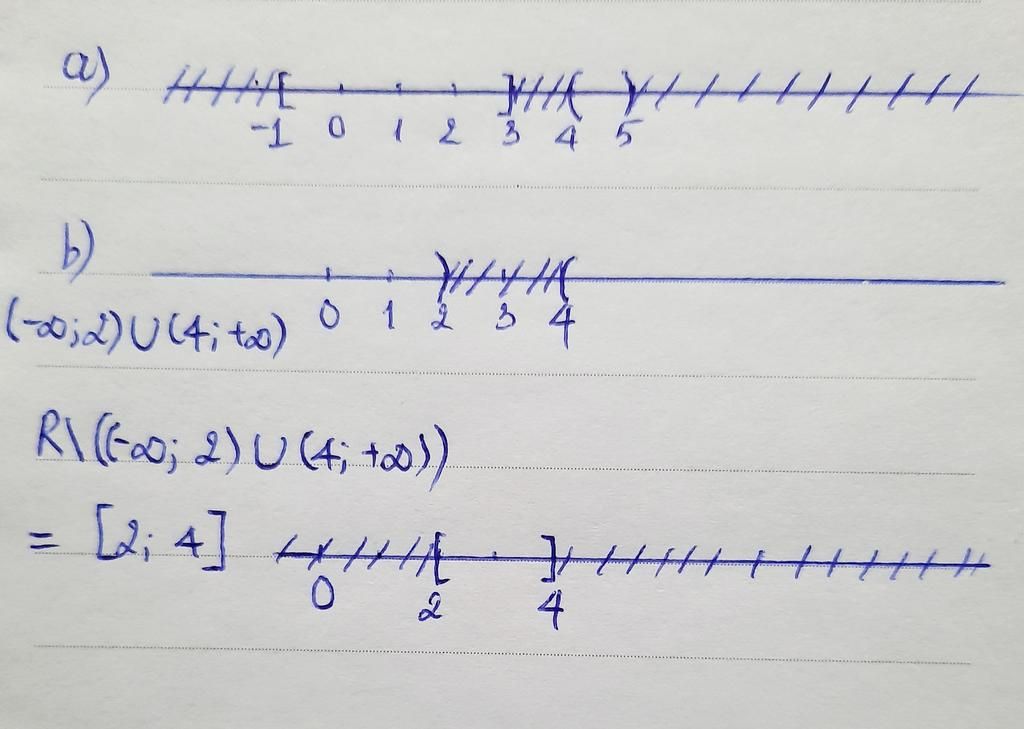 a)
-1 0 1 2 3 4 5
b)
(-∞; 2) ∪ (4; +∞) 0 1 2 3 4
R\((-∞; 2) ∪ (4; +∞))
= [2; 4]
0 2 4